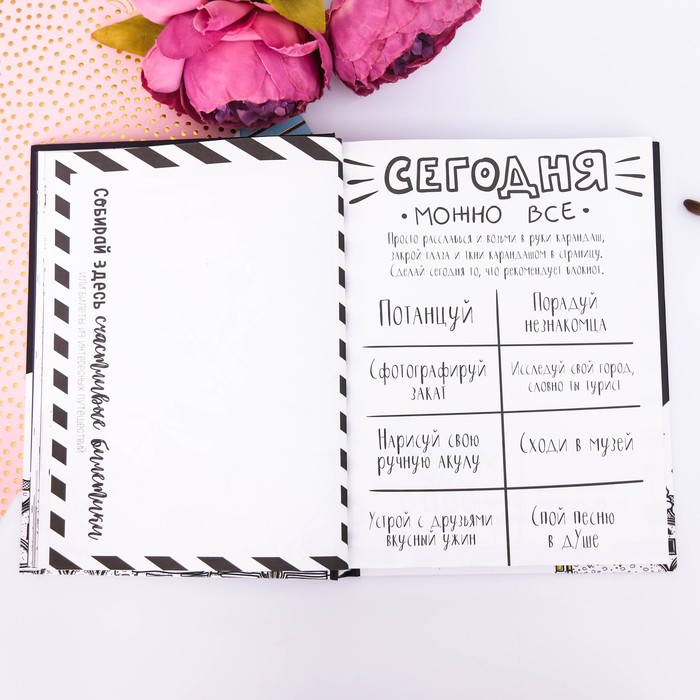 Собирай здесь счастливые билетики
или билеты из интересных путешествий
СЕГОДНЯ
• МОЖНО ВСЕ •
Просто расслабься и возьми в руки карандаш,
закрой глаза и ткни карандашом в страницу.
Сделай сегодня то, что рекомендует блокнот.
Потанцуй
Порадуй
незнакомца
Сфотографируй
закат
Исследуй свой город,
словно ты турист
Нарисуй свою
ручную акулу
Сходи в музей
Устрой с друзьями
вкусный ужин
Спой песню
в душе